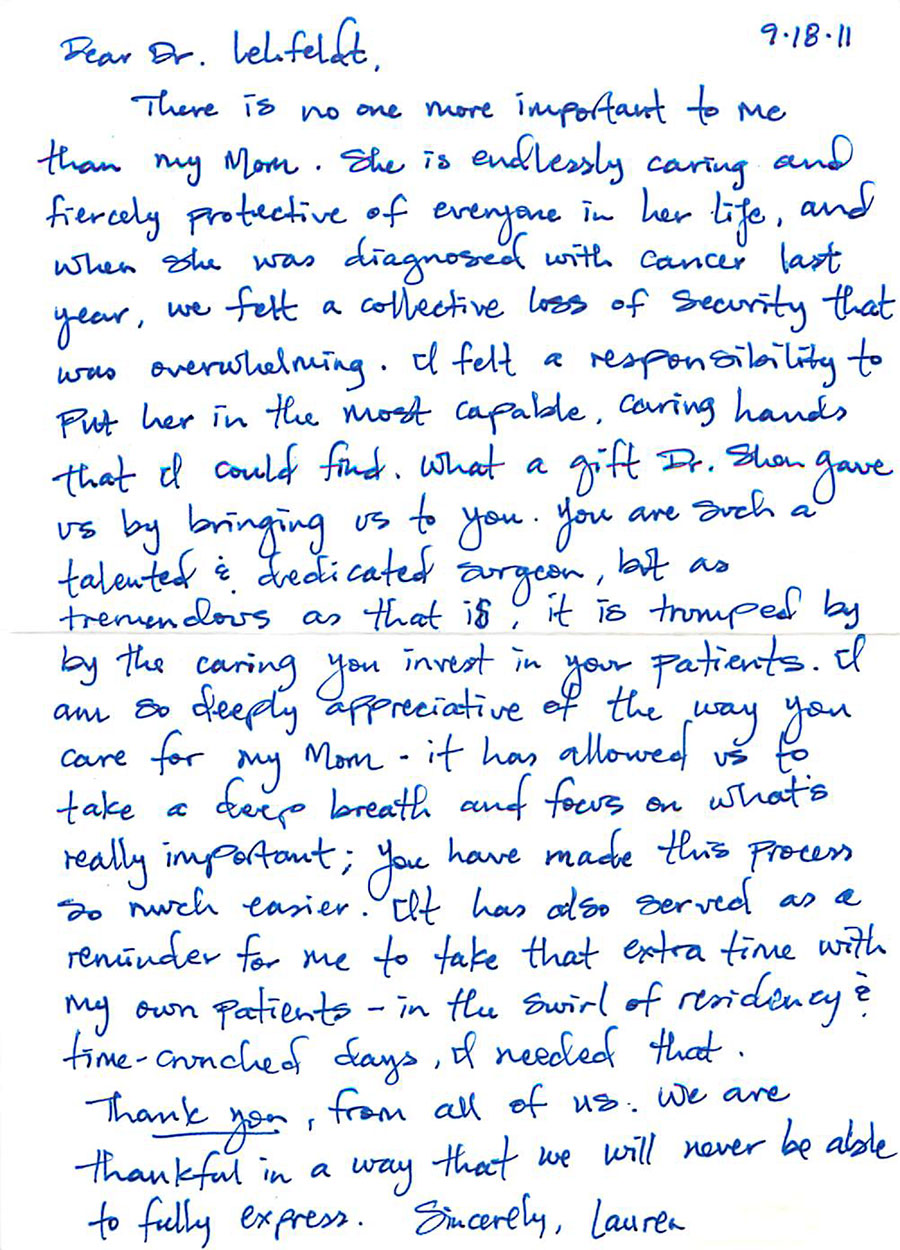 9·18·11
Dear Dr. Lehfeldt,
There is no one more important to me
than my Mom. She is endlessly caring and
fiercely protective of everyone in her life, and
when she was diagnosed with cancer last
year, we felt a collective loss of security that
was overwhelming. I felt a responsibility to
put her in the most capable, caring hands
that I could find. What a gift Dr. Shon gave
us by bringing us to you. You are such a
talented & dedicated surgeon, but as
tremendous as that is, it is trumped by
by the caring you invest in your patients. I
am so deeply appreciative of the way you
care for my Mom - it has allowed us to
take a deep breath and focus on what's
really important; you have made this process
so much easier. It has also served as a
reminder for me to take that extra time with
my own patients - in the swirl of residency &
time-crunched days, I needed that.
Thank you, from all of us. We are
thankful in a way that we will never be able
to fully express. Sincerely, Lauren